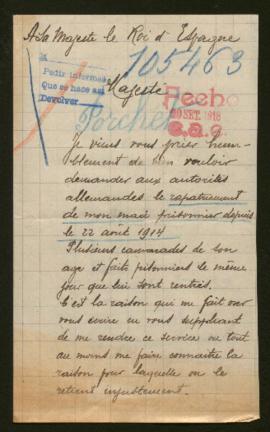 A Sa Majesté le Roi d'Espagne
105463
A
Pedir informes
Que se hace así
Devolver
Majesté
Fecho
20 SET. 1918
Porcher
Je viens vous prier hum-
blement de bien vouloir
demander aux autorités
allemandes le rapatriement
de mon mari prisonnier depuis
le 22 août 1914
Plusieurs camarades de son
age et faits prisonniers le même
jour que lui sont rentrés.
C'est la raison qui me fait oser
vous écrire en vous suppliant
de me rendre ce service ou tout
au moins me faire connaitre la
raison pour laquelle on le
retient injustement.